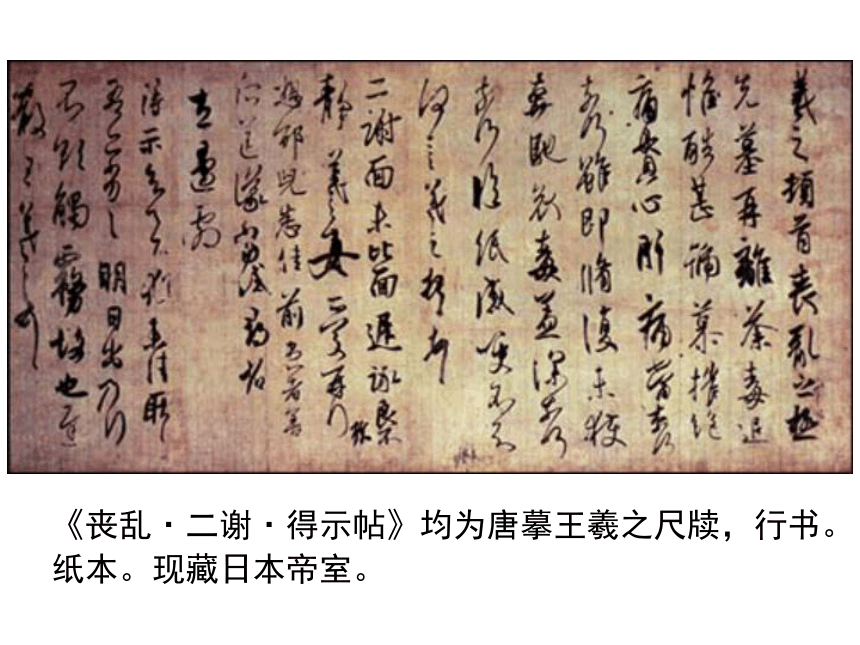 羲之頓首喪亂之極
先墓再離荼毒追
惟酷甚號慕摧絶
痛貫心肝痛當奈何
奈何雖即脩復未獲
奔馳哀毒益深奈何
奈何臨紙感哽不知
何言羲之頓首頓首
二謝面未比面遲詠良
静羲之女愛再拜
想邵兒悉佳前患者善
所送議當試尋省
左邊劇
得示知足下猶未佳耿
吾亦劣劣明日出乃行
不欲觸霧故也遲
散王羲之頓首
《丧乱·二谢·得示帖》均为唐摹王羲之尺牍，行书。
纸本。现藏日本帝室。